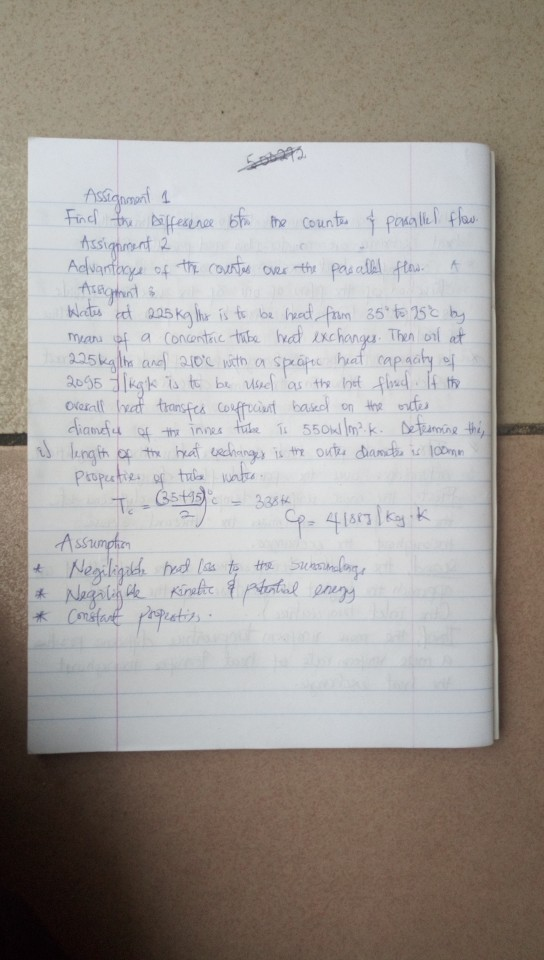 Assignment 1
Find the Difference btn the counter & parallel flow.
Assignment 2
Advantages of the counter over the parallel flow.
Assignment 3
Water at 225kg/hr is to be heat from 35° to 95°c by
means of a concentric tube heat exchanger. Then oil at
225kg/hr and 210°c with a specific heat capacity of
2095 J/kgk is to be used as the hot fluid. If the
overall heat transfer coefficient based on the outer
diameter of the inner tube is 550w/m².k. Determine the,
i) length of the heat exchanger is the outer diameter is 100mm
Properties of tube water.
Tc = (35+95/2)°c = 338k
Cp = 4188J/kg.k
Assumption
* Negligible heat loss to the surroundings
* Negligible kinetic & potential energy
* Constant properties.